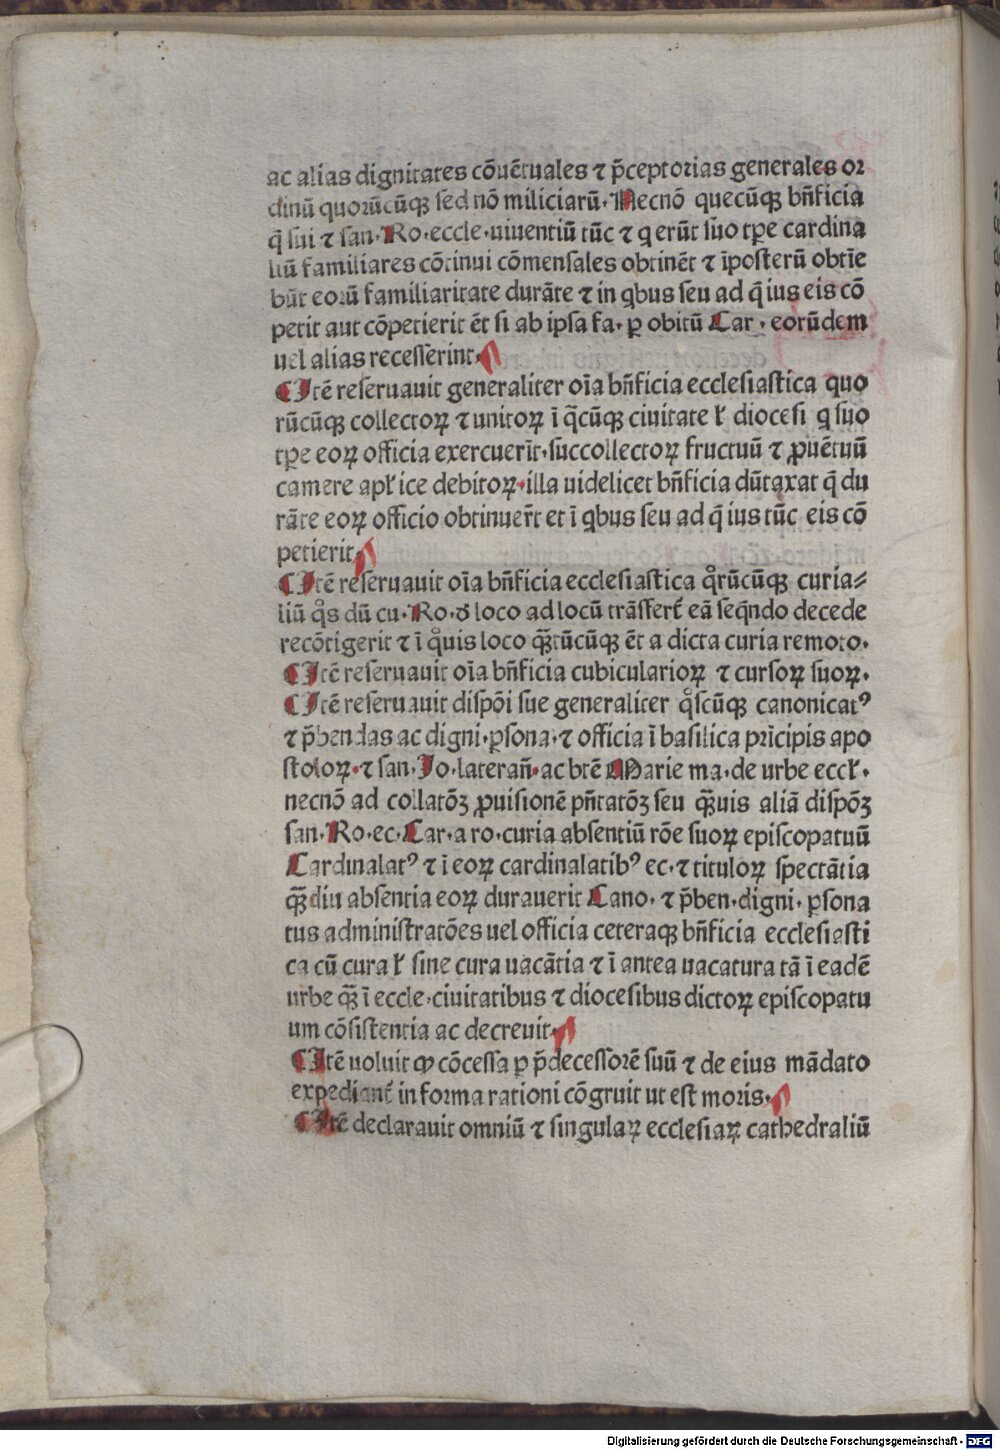 ac alias dignitates cõuẽtuales ⁊ p̃ceptorias generales or
dinũ quorũcũqꝫ sed nõ miliciarũ. Necnõ quecũqꝫ bñficia
q̃ sui ⁊ san. Ro. eccle. uiuentiũ tũc ⁊ q erũt suo tꝑe cardina
liũ familiares cõtinui cõmensales obtinẽt ⁊ ĩposterũ obtĩe
bũt eorũ familiaritate durãte ⁊ in qbus seu ad q̃ ius eis cõ
petit aut cõpetierit ẽt si ab ipsa fa. ꝑ obitũ Car. eorũdem
uel alias recesserint.
¶ Itẽ reseruauit generaliter oĩa bñficia ecclesiastica quo
rũcũqꝫ collectoꝝ ⁊ unitoꝝ ĩ q̃cũqꝫ ciuitate ł diocesi q suo
tꝑe eoꝝ officia exercuerĩt. succollectoꝝ fructuũ ⁊ ꝓuẽtuũ
camere apłice debitoꝝ. illa uidelicet bñficia dũtaxat q̃ du
rãte eoꝝ officio obtinuer̃t et ĩ qbus seu ad q̃ ius tũc eis cõ
petierit
¶ Itẽ reseruauit oĩa bñficia ecclesiastica qͦrũcũqꝫ curia⸗
liũ qͦs dũ cu. Ro. ꝺ loco ad locũ trãsfert̃ eã seq̃ndo decede
re cõtigerit ⁊ ĩ qͦuis loco qꝫ̃tũcũqꝫ ẽt a dicta curia remoto.
¶ Itẽ reseruauit oĩa bñficia cubicularioꝝ ⁊ cursoꝝ suoꝝ.
¶ Itẽ reseruauit dispõi sue generaliter qͦscũqꝫ canonicatꝰ
⁊ p̃bendas ac digni. ꝑsona. ⁊ officia ĩ basilica prĩcipis apo
stoloꝝ. ⁊ san. Jo. laterañ. ac btẽ Marie ma. de urbe eccł.
necnõ ad collatõꝫ ꝓuisionẽ pñtatõꝫ seu qꝫ̃uis aliã dispõꝫ
san. Ro. ec. Car. a ro. curia absentiũ rõe suoꝝ episcopatuũ
Cardinalatꝰ ⁊ ĩ eoꝝ cardinalatibꝰ ec. ⁊ tituloꝝ spectãtia
qꝫ̃diu absentia eoꝝ durauerit Cano. ⁊ p̃ben. digni. ꝑsona
tus administratões uel officia ceteraqꝫ bñficia ecclesiasti
ca cũ cura ł sine cura uacãtia ⁊ ĩ antea uacatura tã ĩ eadẽ
urbe qꝫ̃ ĩ eccle. ciuitatibus ⁊ diocesibus dictoꝝ episcopatu
um cõsistentia ac decreuit.
¶ Itẽ uoluit ꝙ cõcessa ꝑ p̃decessorẽ suũ ⁊ de eius mãdato
expediant̃ in forma rationi cõgruit ut est moris.
¶ Itẽ declarauit omniũ ⁊ singulaꝝ ecclesiaꝝ cathedraliũ
Digitalisierung gefördert durch die Deutsche Forschungsgemeinschaft - DFG